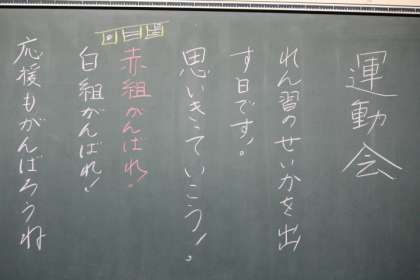 運動会
れん習のせいかを出
す日です!。
思いきっていこう!。
赤組がんばれ!
白組がんばれ!
応援もがんばろうね